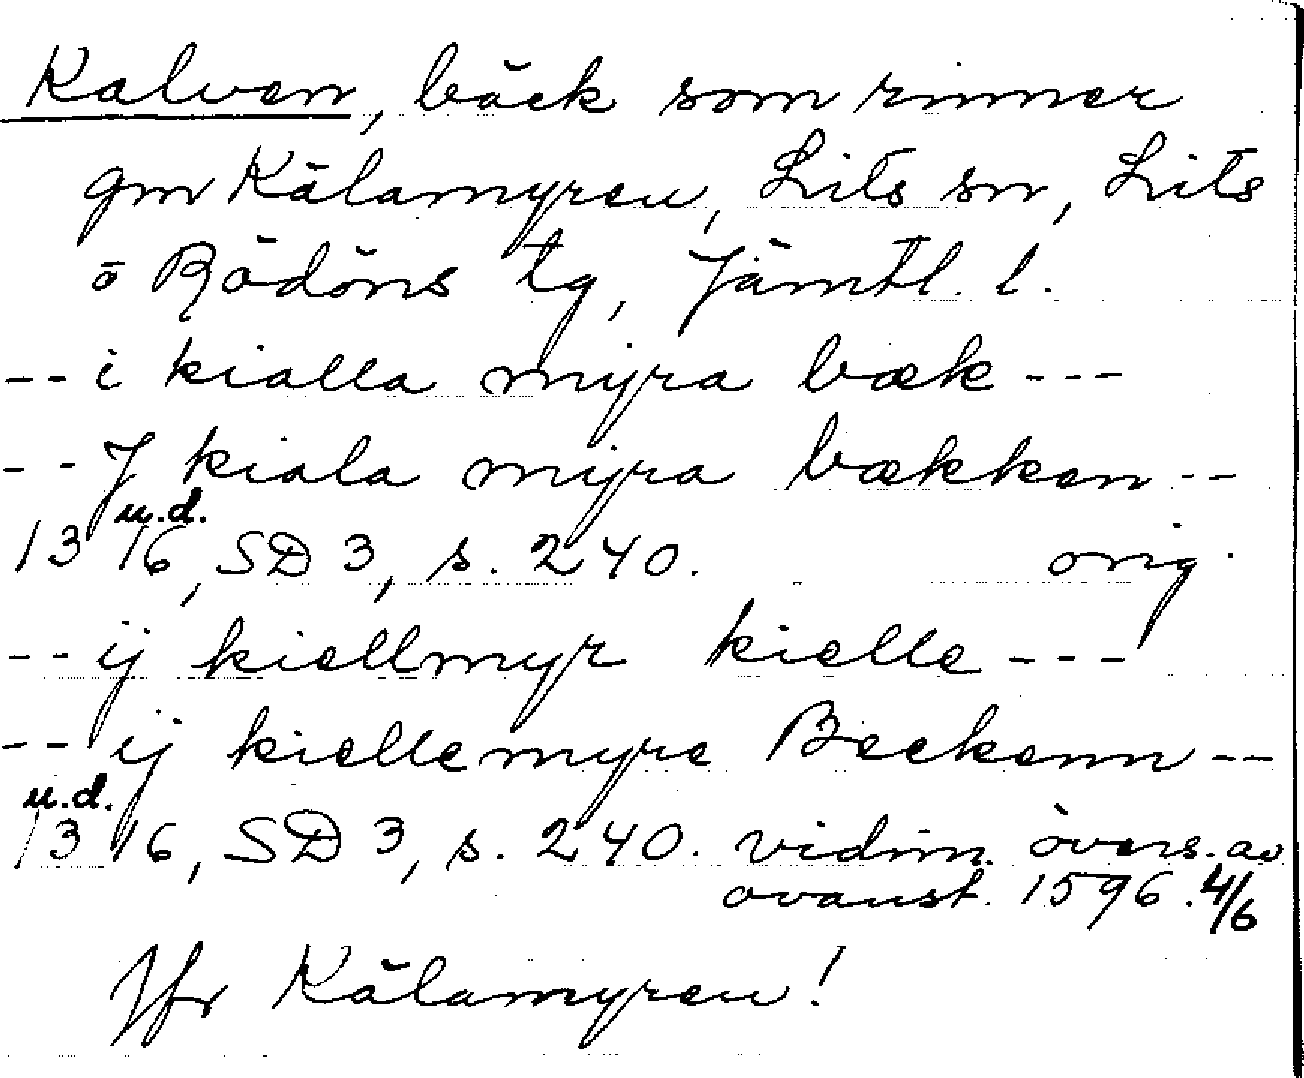 Kalven, bäck som rinner
gm Kälamyren, Lits sn, Lits
o Rödöns tg, Jämtl. l.
-- i kialla myra bæk ---
-- J kiala myra bækken --
u.d.
1316, SD 3, s. 240. orig.
-- ij kiellmyr kielle ---
-- ij kiellemyre Beckenn --
u.d.
1316, SD 3, s. 240. vidim. övers. av
ovanst. 1596. 4/6
Jfr Kälamyren!